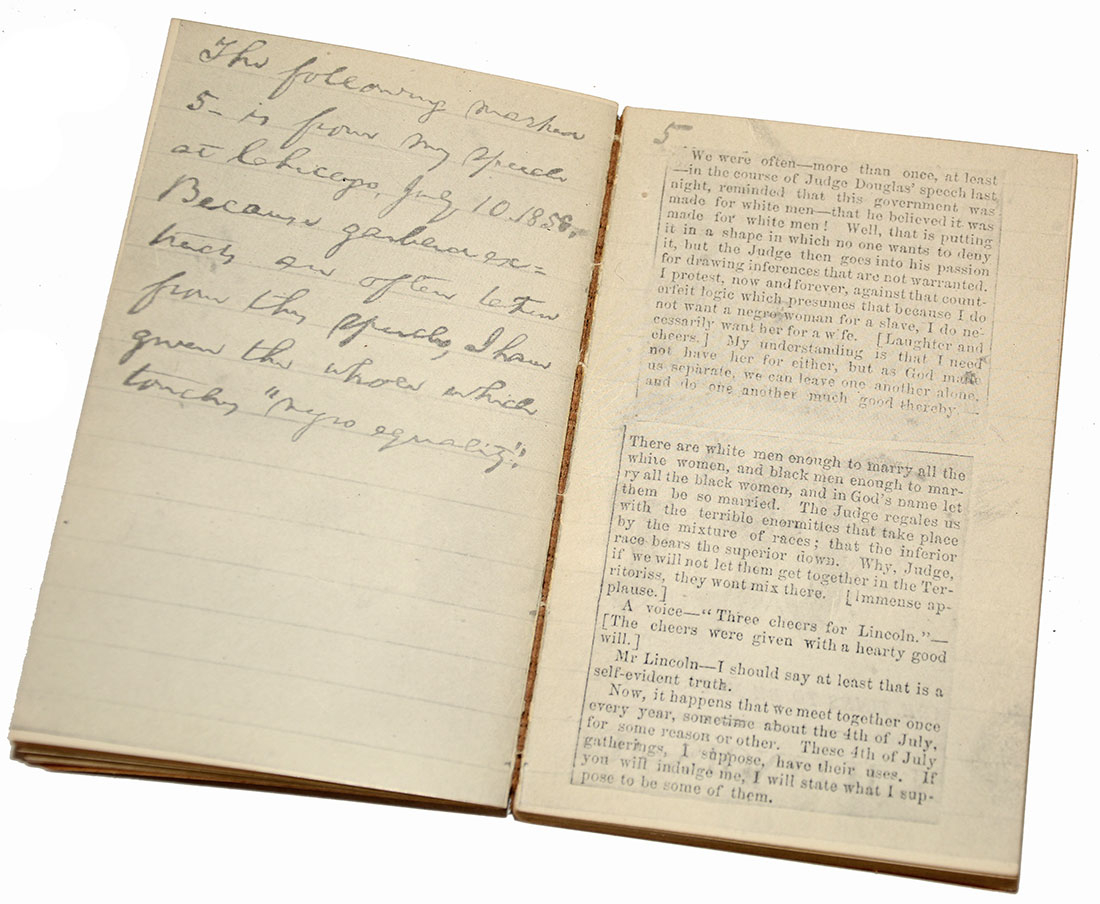 The following marked
5- is from my speech
at Chicago, July 10. 1858.
Because garbled ex=
tracts are often taken
from this speech, I have
given the whole which
touches "negro equality".
5
We were often—more than once, at least
—in the course of Judge Douglas' speech last
night, reminded that this government was
made for white men—that he believed it was
made for white men! Well, that is putting
it in a shape in which no one wants to deny
it, but the Judge then goes into his passion
for drawing inferences that are not warranted.
I protest, now and forever, against that count-
erfeit logic which presumes that because I do
not want a negro woman for a slave, I do ne-
cessarily want her for a wife. [Laughter and
cheers.] My understanding is that I need
not have her for either, but as God made
us separate, we can leave one another alone,
and do one another much good thereby.—
There are white men enough to marry all the
white women, and black men enough to mar-
ry all the black women, and in God's name let
them be so married. The Judge regales us
with the terrible enormities that take place
by the mixture of races; that the inferior
race bears the superior down. Why, Judge,
if we will not let them get together in the Ter-
ritoriss, they wont mix there. [Immense ap-
plause.]
A voice—"Three cheers for Lincoln."—
[The cheers were given with a hearty good
will.]
Mr Lincoln—I should say at least that is a
self-evident truth.
Now, it happens that we meet together once
every year, sometime about the 4th of July,
for some reason or other. These 4th of July
gatherings, I suppose, have their uses. If
you will indulge me, I will state what I sup-
pose to be some of them.